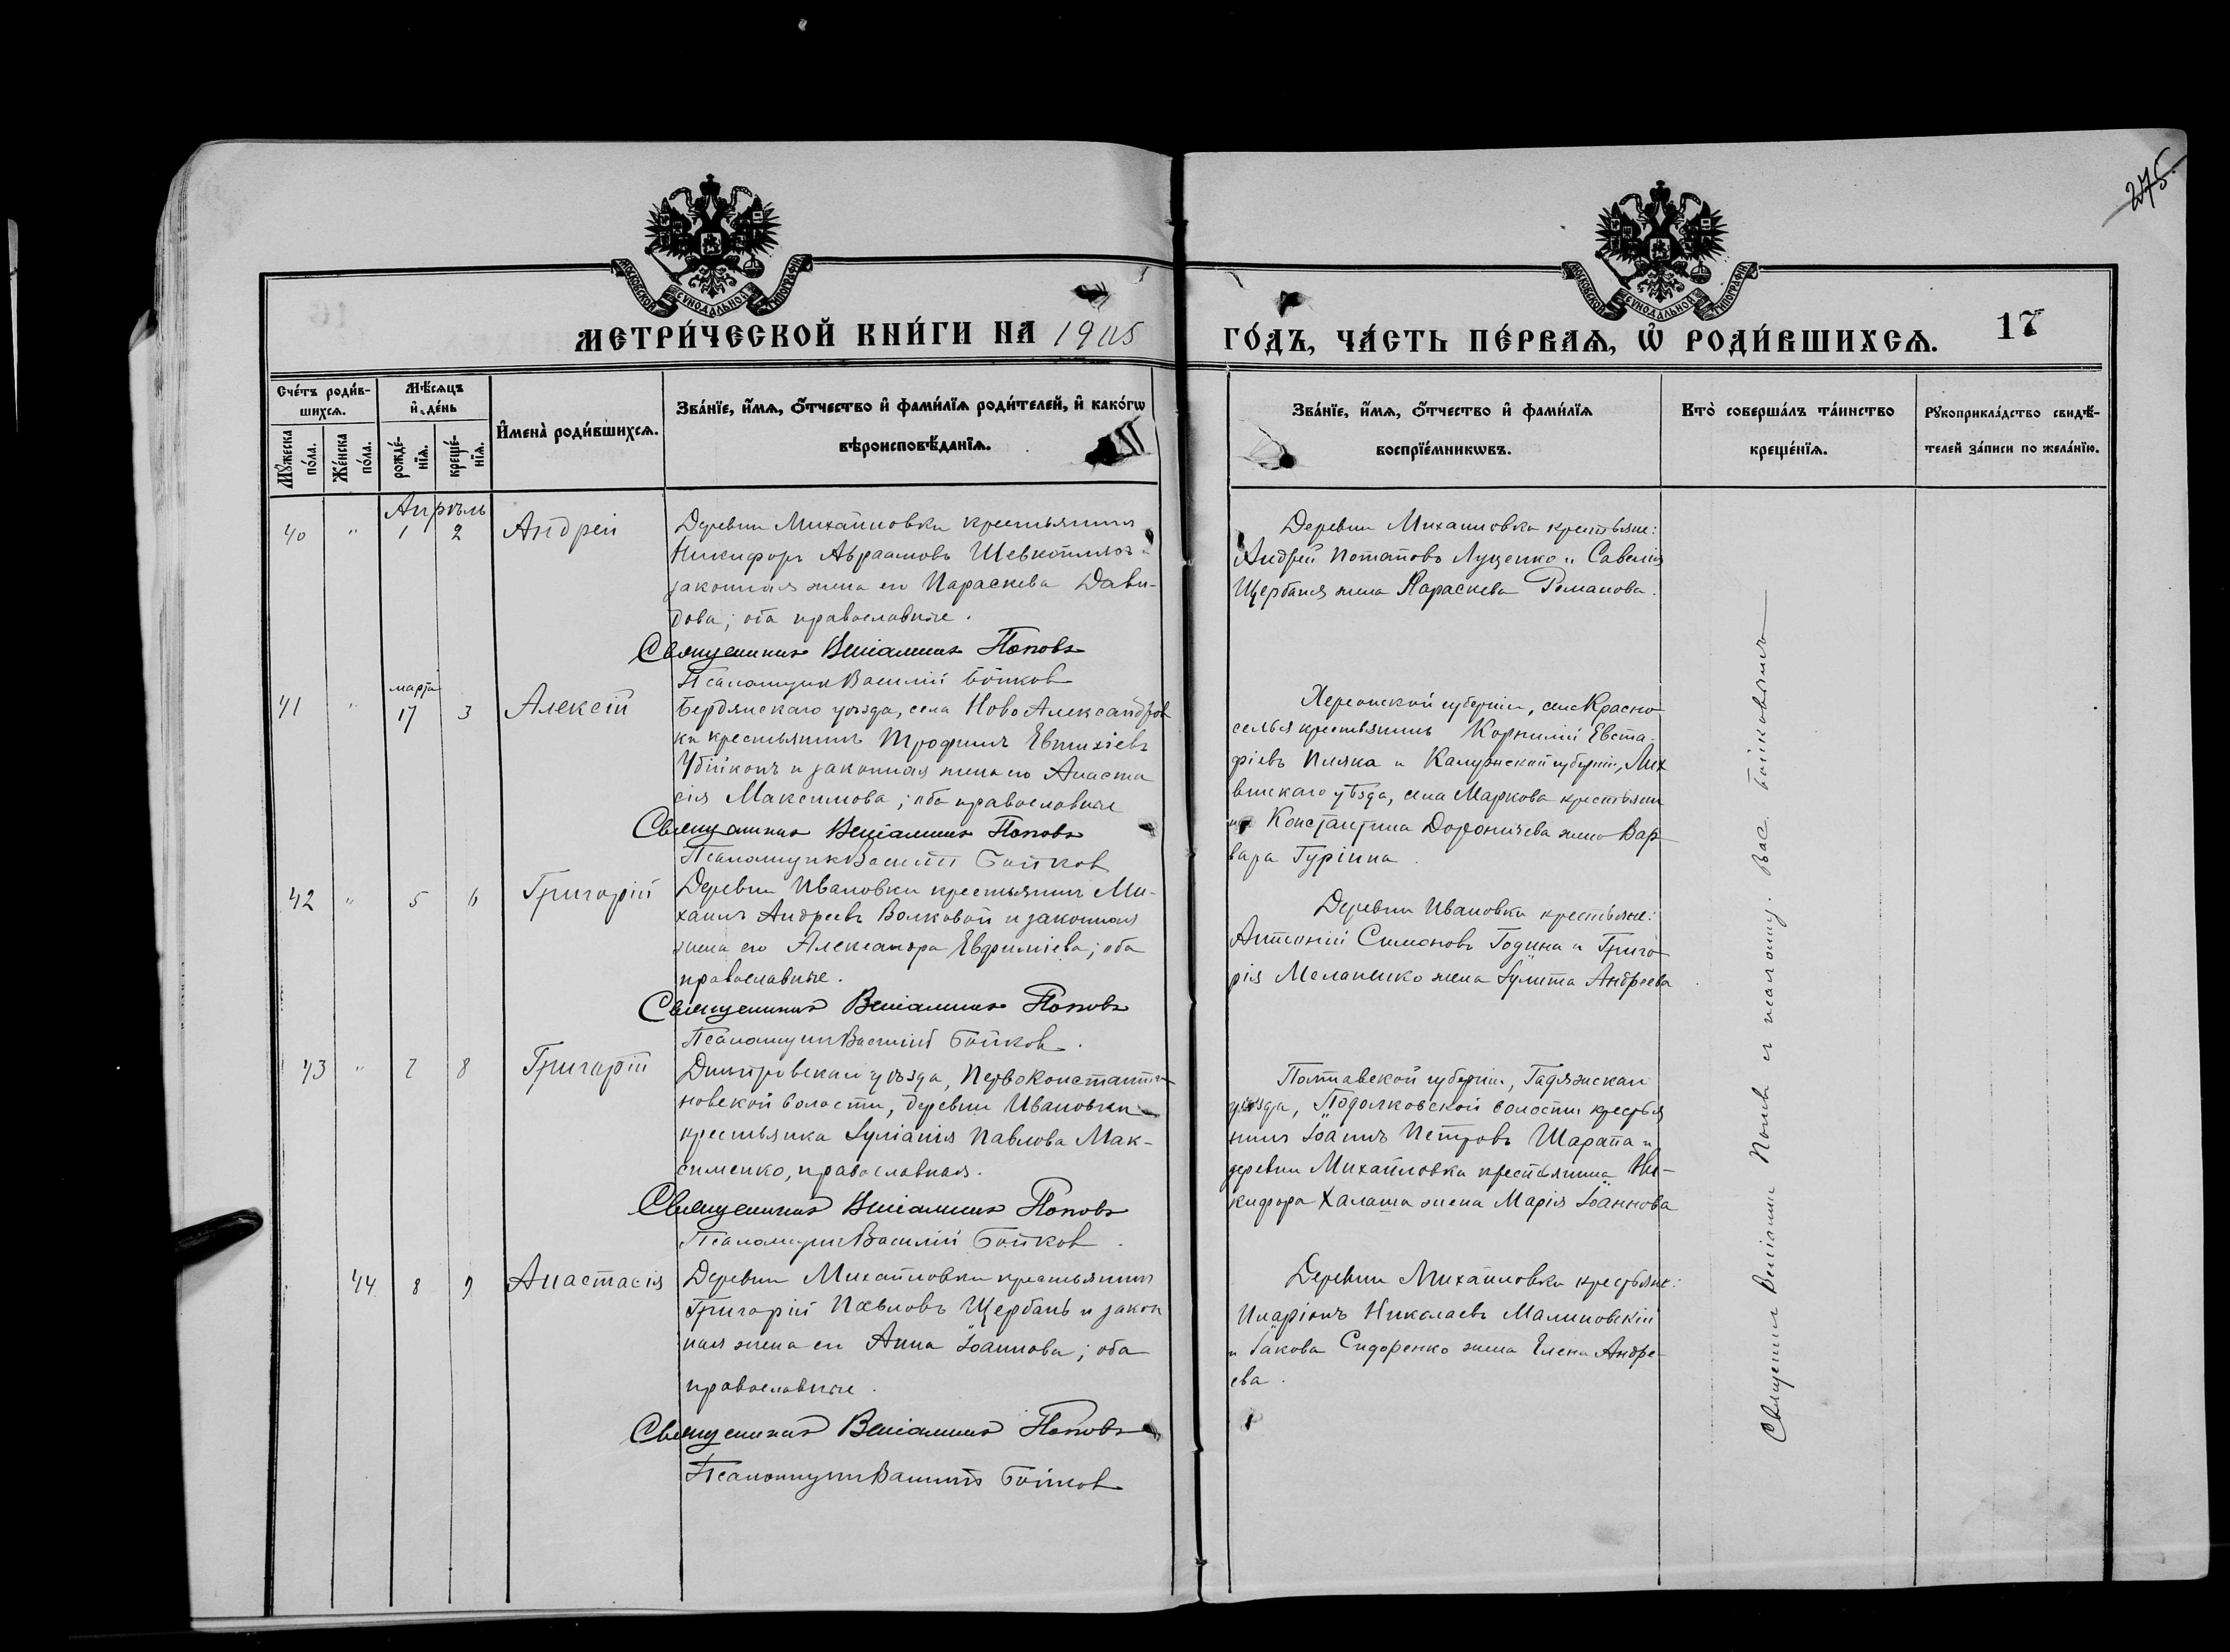 275.
МОСКОВСКОЙ СѴНОДАЛЬНОЙ ТИПОГРАФІИ
МОСКОВСКОЙ СѴНОДАЛЬНОЙ ТИПОГРАФІИ
МЕТРИ́ЧЕСКОЙ КНИ́ГИ НА 1905 ГО́ДЪ, ЧА́СТЬ ПЕ́РВАѦ, Ѡ҆ РОДИ́ВШИХСѦ. 17
Сче́тъ роди́в-
шихсѧ.
Мꙋ́жеска
по́ла.
Же́нска
по́ла.
Мѣ́сѧцъ
и҆ де́нь
рожде́-
нїѧ.
креще́-
нїѧ.
И҆мена̀ роди́вшихсѧ.
Зва́нїе, и҆́мѧ, ѻ҆́тчество и҆ фами́лїѧ роди́телей, и҆ како́гѡ
вѣроисповѣ́данїѧ.
Зва́нїе, и҆́мѧ, ѻ҆́тчество и҆ фами́лїѧ
воспрїе́мникѡвъ.
Кто̀ соверша́лъ та́инство
креще́нїѧ.
Рꙋкоприкла́дство свидѣ́-
телей за́писи по жела́нїю.
Апрѣль
40 " 1 2 Андрей
Деревни Михайловки крестьянинъ
Никифоръ Авраамовъ
законная жена его Параскева Дави-
дова; оба православные.
Священникъ Веніаминъ Поповъ
Псаломщикъ Василій Бойковъ
Деревни Михайловки крестьяне:
Андрей Потаповъ Луценко и Савелія
Щербаня жена Параскева Романова.
марта
41 " 17 3 Алексій
Бердянскаго уѣзда, села НовоАлександров
ки крестьянинъ Трофимъ Евтихіевъ
Убійконь и законная жена его Анаста
сія Максимова; оба православные
Священникъ Веніаминъ Поповъ
Псаломщикъ Василій Бойков
Херсонской губерніи, села Красно
селья крестьянинъ Корнилій Евста-
фіевъ Пляка и Калужской губерніи, Лих
винскаго уѣзда, села Маркова крестьяни
на Константина Дороничева жена Вар
вара Гуріина.
42 " 5 6 Григорій
Деревни Ивановки крестьянинъ Ми-
хаилъ Андреевъ Волковой и законная
жена его Александра Евфиміева; оба
православные.
Священникъ Веніаминъ Поповъ
Псаломщикъ Василій Бойков.
Деревни Ивановки крестьяне:
Антоній Симоновъ Година и Григо
рія Меланенко жена Іулита Андреева
43 " 7 8 Григорій
Днѣпровскаго уѣзда, Первоконстанти
новской волости, деревни Ивановки
крестьянка Іуліанія Павлова Мак-
сименко, православная.
Священникъ Веніаминъ Поповъ
Псаломщикъ Василій Бойков.
Полтавской губерніи, Гадяжскаго
уѣзда, волости крестья
нинъ Іоаннъ Петровъ Шарапа и
деревни Михайловки крестьянина Ни-
кифора Халаша жена Марія Іоаннова
44 8 9 Анастасія
Деревни Михайловки крестьянинъ
Григорій Павловъ Щербань и закон
ная жена его Анна Іоаннова; оба
православные.
Священникъ Веніаминъ Поповъ
Псаломщикъ Василій Бойков
Деревни Михайловки крестьяне:
Иларіонъ Николаевъ Малиновскій
и Іакова Сидоренко жена Елена Андре-
ева.
Священникъ Веніаминъ Поповъ съ псаломщ. Вас. Бойковымъ